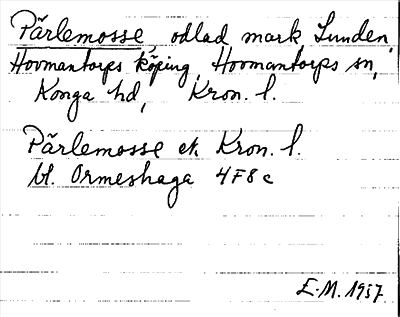 Pärlemosse, odlad mark, Lunden,
Hovmantorps köping, Hovmantorps sn,
Konga hd, Kron. l.
Pärlemosse ek Kron. l.
bl. Ormeshaga 4F8c
E.M. 1957